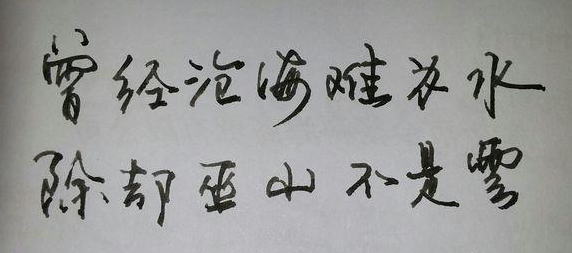 曾经沧海难为水
除却巫山不是雲